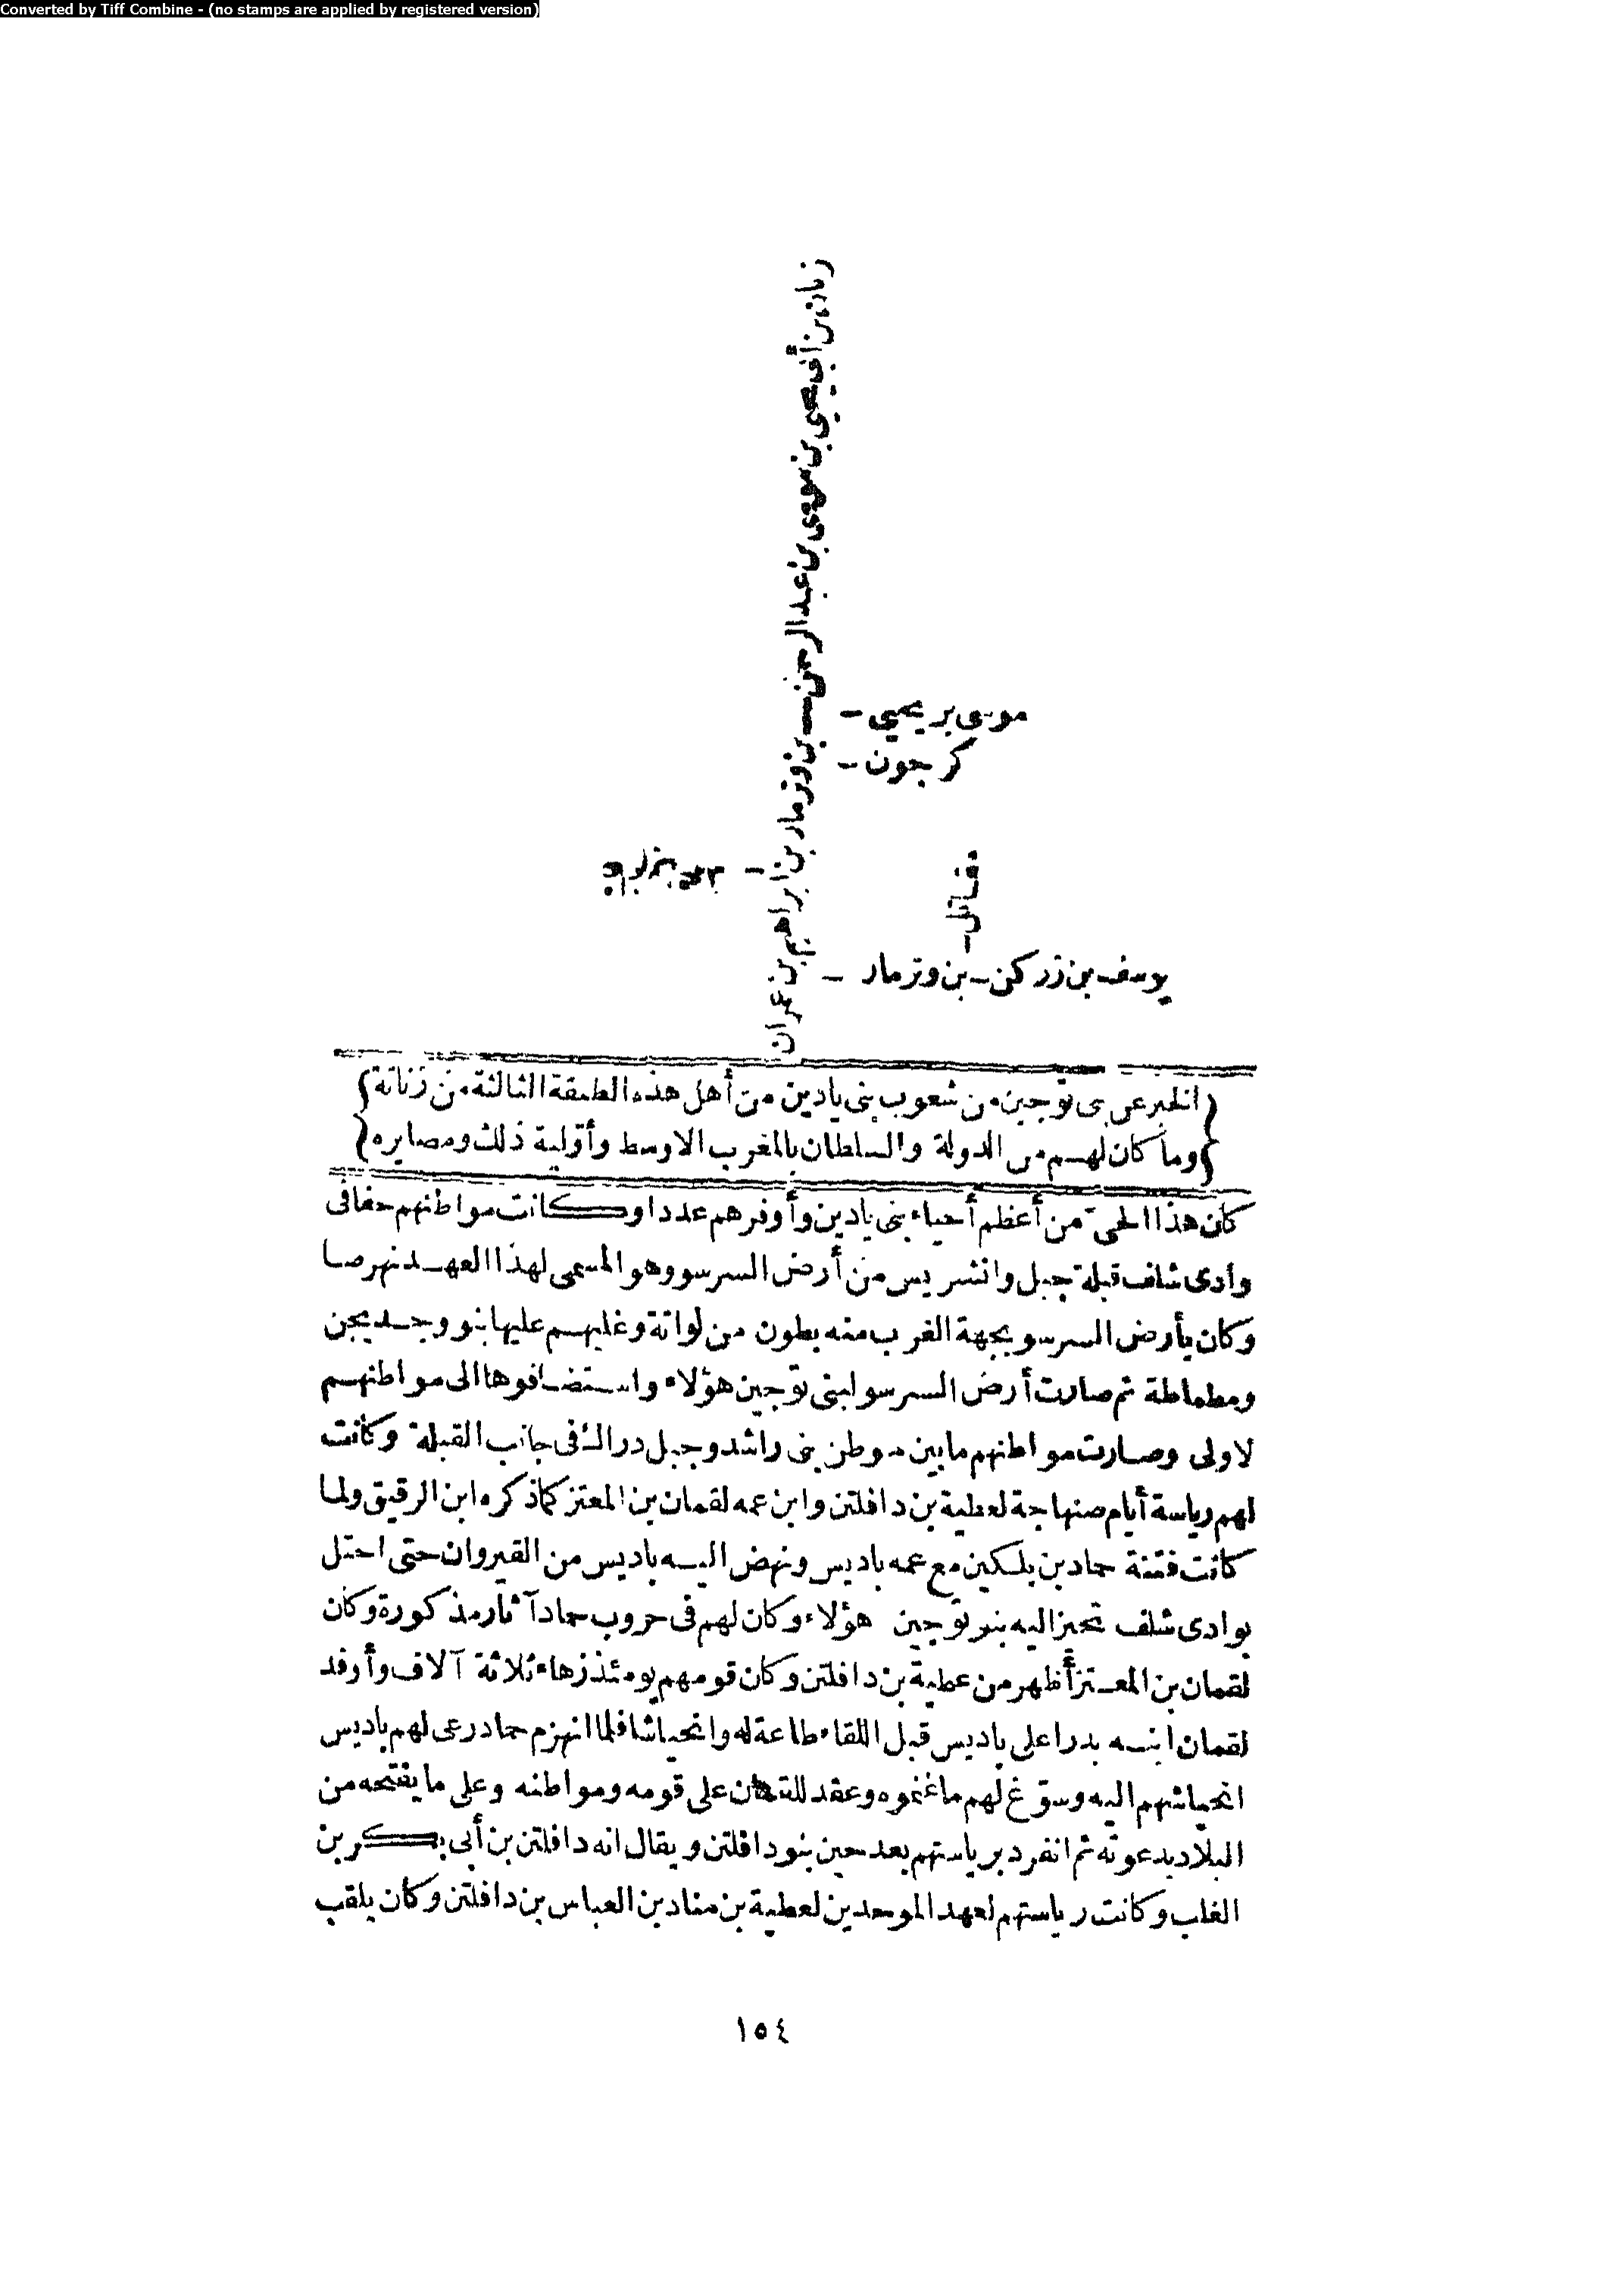 Converted by Tiff Combine - (no stamps are applied by registered version)
زيان بن أبي يحيى بن موسى بن عبد الرحمن بن وترمار بن ابراهيم بن عمران
موسى بن يحيى
كرجون
مقاتل
يوسف بن زركن بن وترمار
{الخبر عن بنى توجين من شعوب بنى يادين من أهل هذه الطبقة الثالثة من زناتة}
{وما كان لهم من الدولة والسلطان بالمغرب الاوسط وأولية ذلك ومصايره}
كان هذا الحى من أعظم أحياء بنى يادين وأوفرهم عددا وكانت مواطنهم حفافى
وادى شلف قبلة جبل وانشريس من أرض السرسو وهو المسمى لهذا العهد نهر صا
وكان بأرض السرسو بجهة الغرب منه بطون من لواتة وغلبهم عليها بنو وجديجن
ومطماطة ثم صارت أرض السرسو لبنى توجين هؤلاء واستضافوها الى مواطنهم
لاولى وصارت مواطنهم ما بين موطن بنى راشد وجبل دراك فى جانب القبلة وكانت
لهم رياسة أيام صنهاجة لعطية بن دافلتن وابن عمه لقمان بن المعتز كما ذكره ابن الرقيق ولما
كانت فتنة حماد بن بلكين مع عمه باديس ونهض اليه باديس من القيروان حتى احتل
بوادى شلف تحيز اليه بنو توجين هؤلاء وكان لهم فى حروب حماد آثار مذكورة وكان
لقمان بن المعتز أظهر من عطية بن دافلتن وكان قومهم يومئذ زهاء ثلاثة آلاف وأوفد
لقمان ابنه بدرا على باديس قبل اللقاء طاعة له وانحياشا فلما انهزم حماد رعى لهم باديس
انحياشهم اليه وسوغ لهم ما غنموه وعقد للقمان على قومه ومواطنه وعلى ما يفتحه من
البلاد بدعوته ثم انفرد برياستهم بعد حين بنو دافلتن ويقال انه دافلتن بن أبى بكر بن
الغلب وكانت رياستهم لعهد الموحدين لعطية بن مناد بن العباس بن دافلتن وكان يلقب
١٥٤